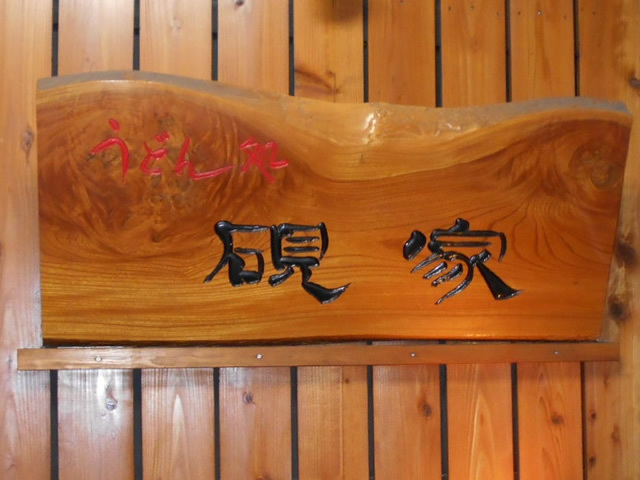 うどん処
硯家